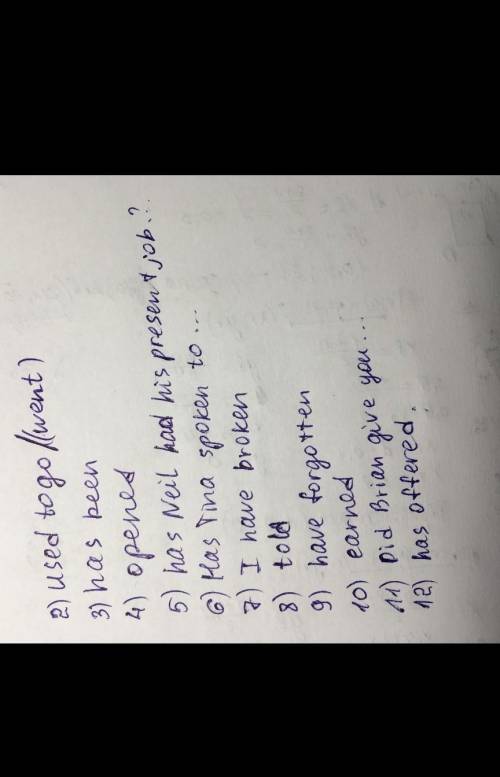 2) used to go /(went)
3) has been
4) opened
5) has Neil had his present job?..
6) Has Tina spoken to ...
7) I have broken
8) told
9) have forgotten
10) earned
11) Did Brian give you...
12) has offered.